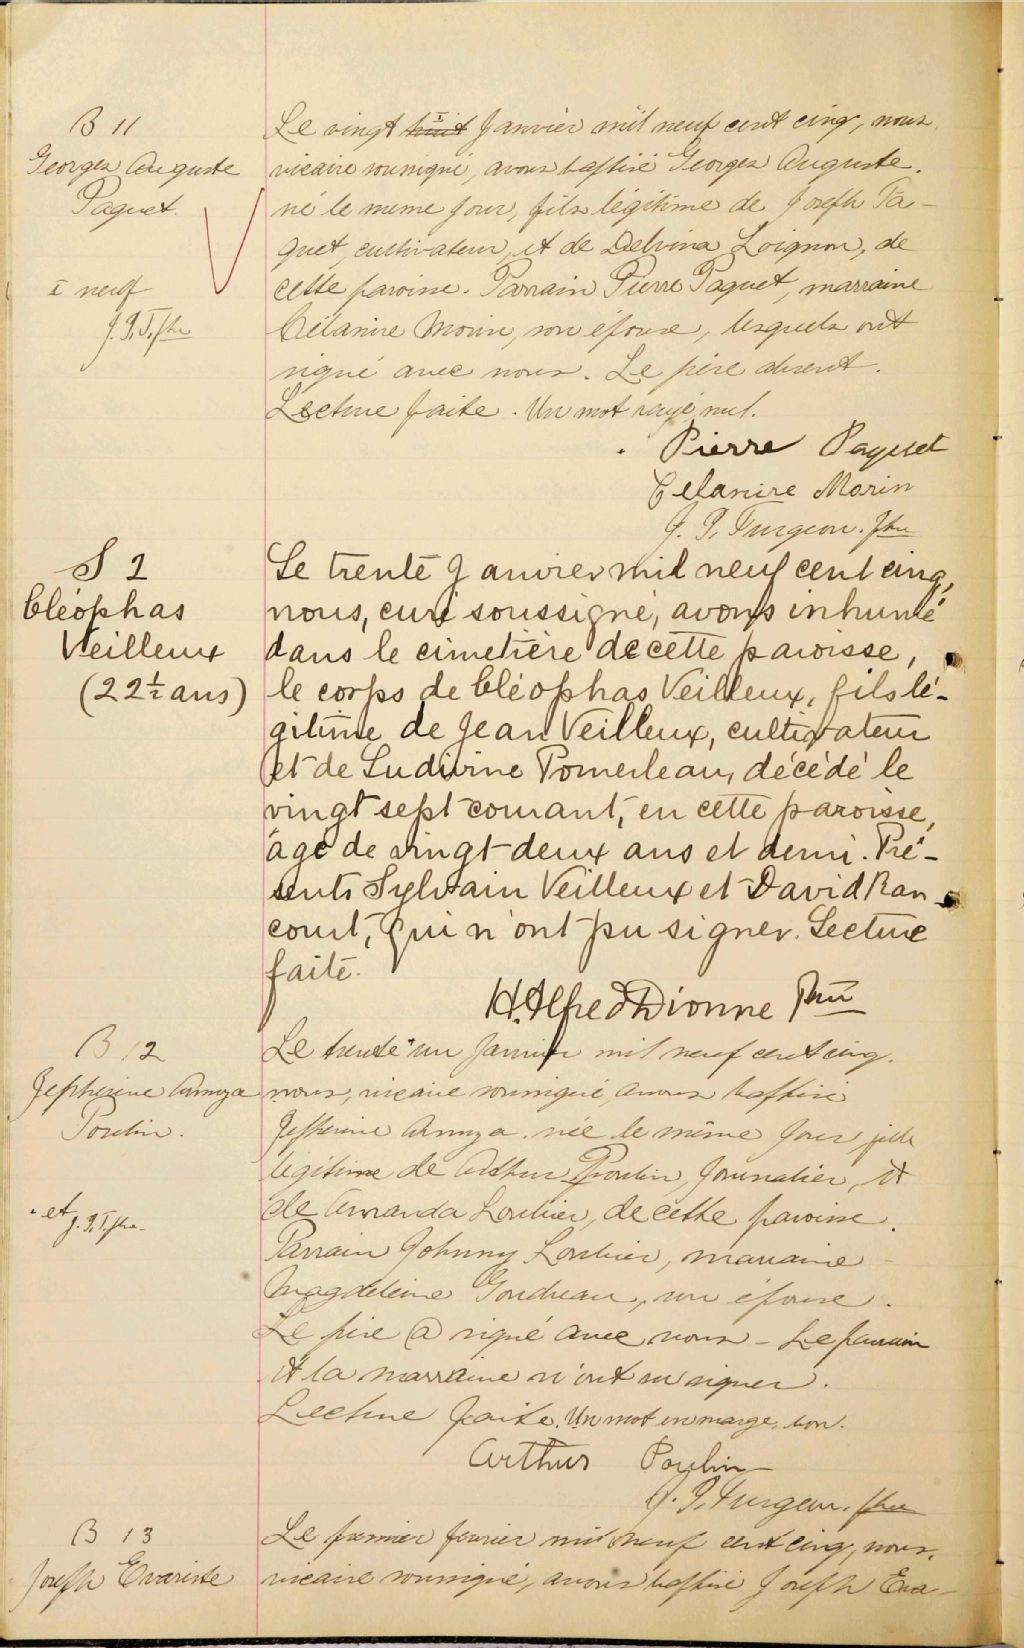 B 11
Georges Auguste
Paquet
I neuf
J. P. T. ptre
Le vingt huit I Janvier mil neuf cent cinq, nous
vicaire soussigné, avons baptisé Georges Auguste.
né le meme jour, fils légitime de Joseph Pa-
quet, cultivateur, et de Delvina Loignon, de
cette paroisse. Parrain Pierre Paquet, marraine
Célanire Morin, son épouse, lesquels ont
signé avec nous. Le père absent.
Lecture faite. Un mot rayé nul.
Pierre Paquet
Celanire Morin
J. P. Turgeon. ptre
S 2
Cléophas
Veilleux
(22½ ans)
Le trente Janvier mil neuf cent cinq,
nous, curé soussigné, avons inhumé
dans le cimetière de cette paroisse,
le corps de Cléophas Veilleux, fils lé-
gitime de Jean Veilleux, cultivateur
et de Ludivine Pomerleau, décédé le
vingt sept courant, en cette paroisse,
âgé de vingt-deux ans et demi. Pré-
sents Sylvain Veilleux et David Ran-
court, qui n'ont pu signer. Lecture
faite.
H. Alfred Dionne Ptre
B 12
Jephérine Amaza
Poulin.
et J. P. T. ptre
Le trente un Janvier mil neuf cent cinq.
nous, vicaire soussigné, avons baptisé
née le même jour, fille
légitime de Arthur Poulin, journalier, et
de Amanda Loubier, de cette paroisse.
Parrain Johnny Loubier, marraine
Magdeleine Goudreau, son épouse.
Le père a signé avec nous - Le parrain
et la marraine n'ont su signer.
Lecture faite. Un mot en marge, bon.
Arthur Poulin
J. P. Turgeon. ptre
B 13
Joseph Evariste
Le premier fevrier mil neuf cent cinq, nous,
vicaire soussigné, avons baptisé Joseph Eva-